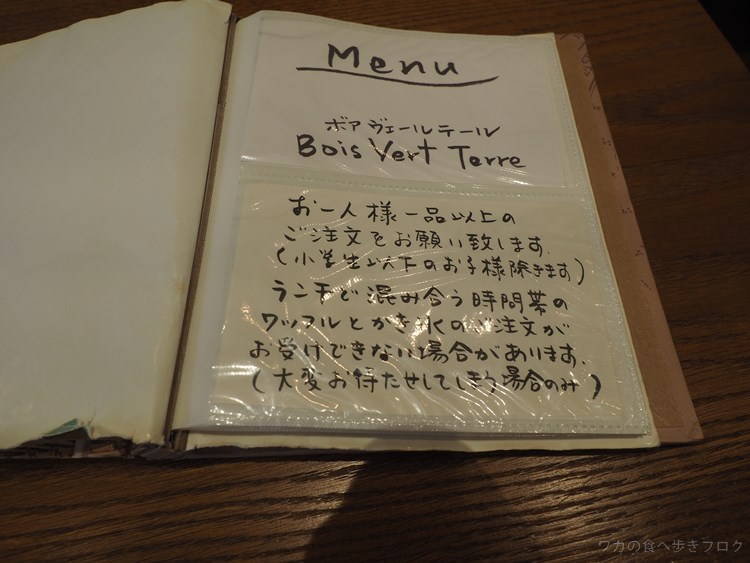 Menu
ボア ヴェールテール
Bois Vert Terre
お一人様一品以上の
ご注文をお願い致します.
(小学生以下のお子様除きます)
ランチで混み合う時間帯の
ワッフルとかき氷のご注文が
お受けできない場合があります.
(大変お待たせしてしまう場合のみ)
ワカの食べ歩きブログ